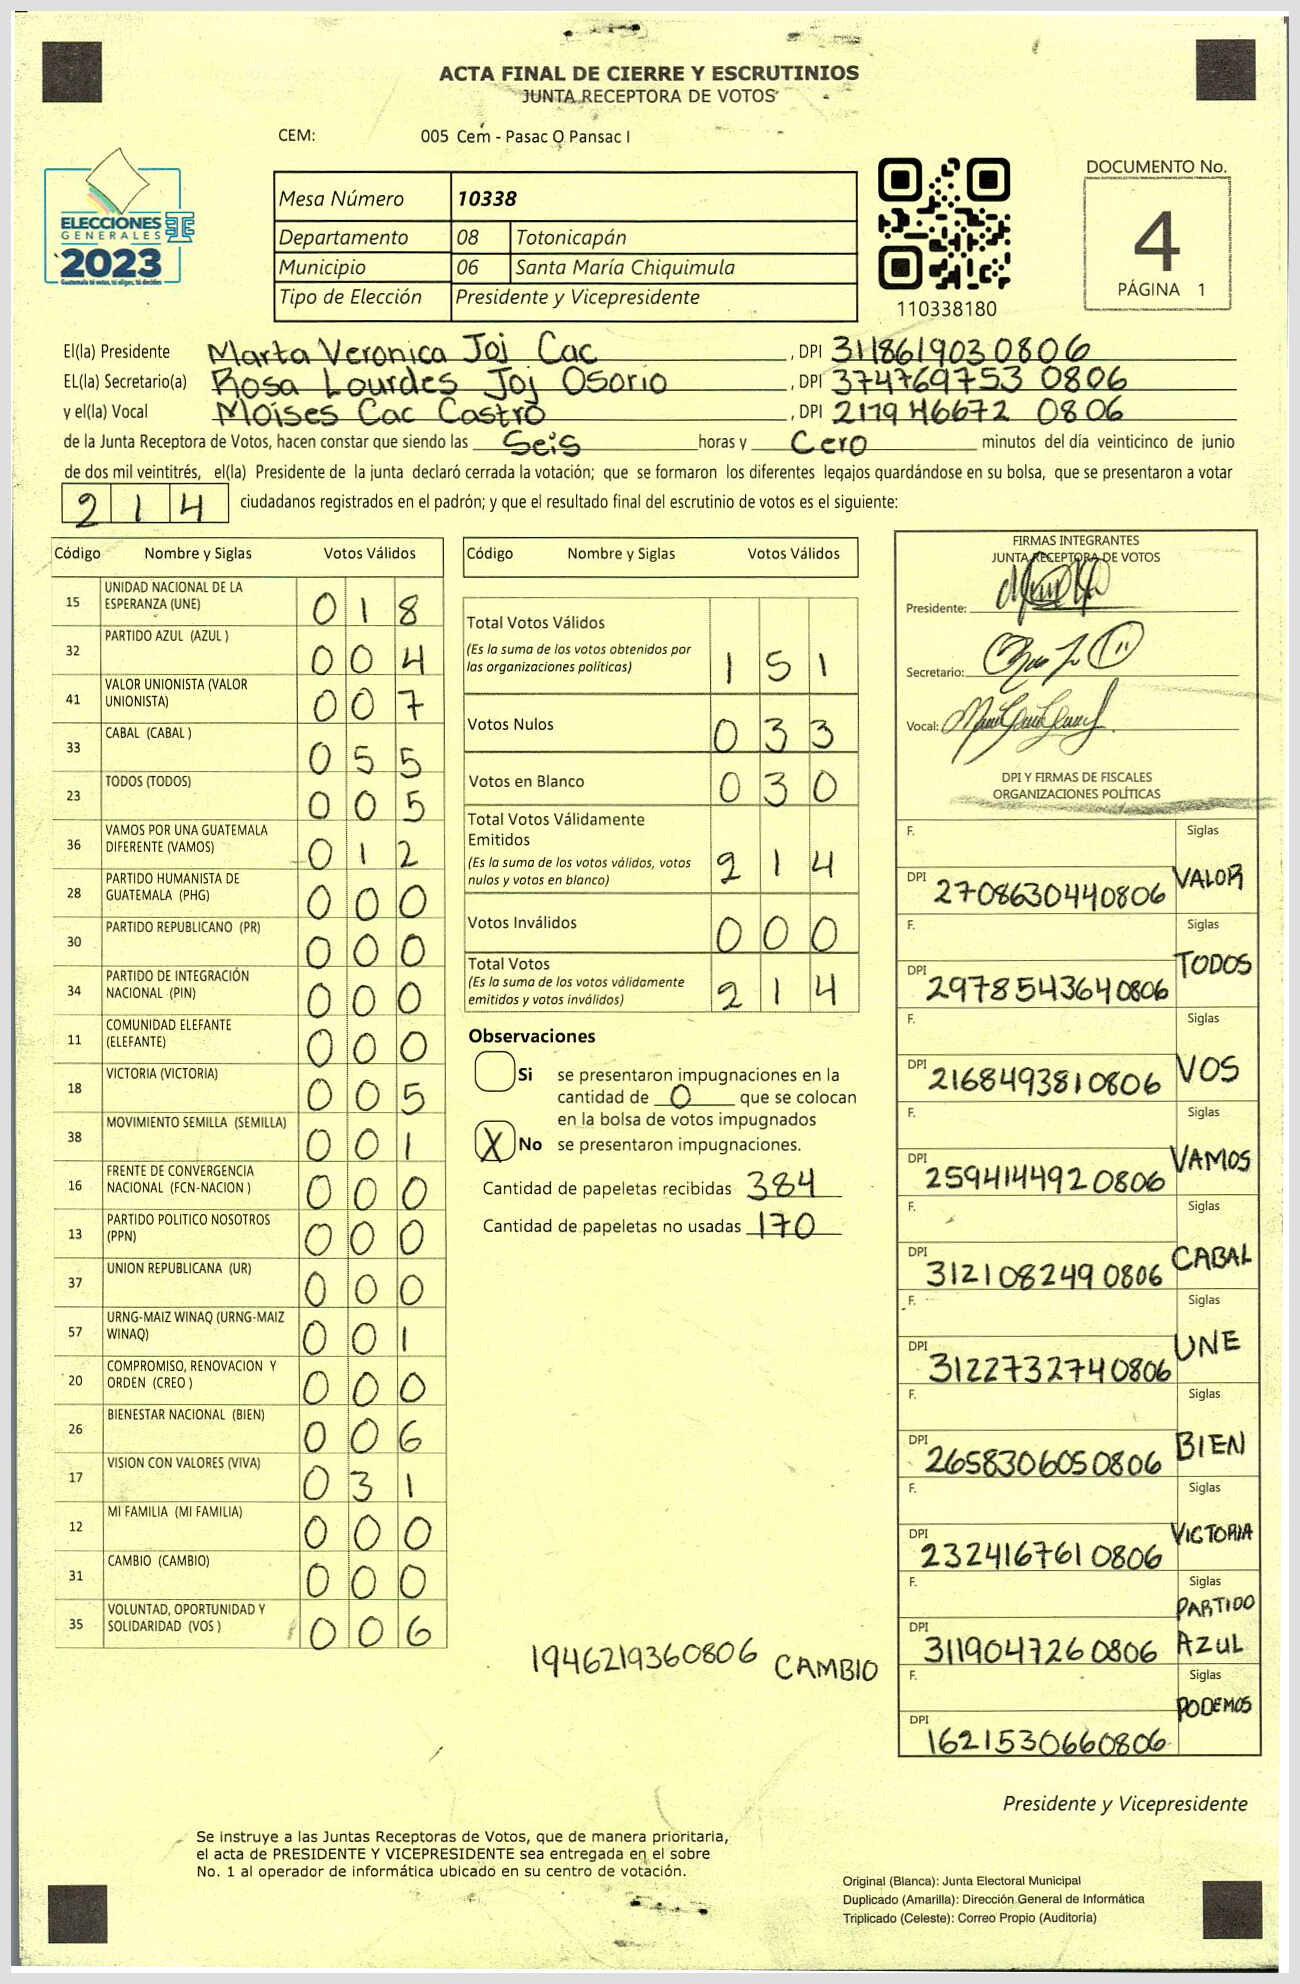 ACTA FINAL DE CIERRE Y ESCRUTINIOS
JUNTA RECEPTORA DE VOTOS
CEM: 005 Cem - Pasac O Pansac I
ELECCIONES
GENERALES
2023
Guatemala tú votas, tú eliges, tú decides
Mesa Número 10338
Departamento 08 Totonicapán
Municipio 06 Santa María Chiquimula
Tipo de Elección Presidente y Vicepresidente
110338180
DOCUMENTO No.
4
PÁGINA 1
El(la) Presidente Marta Veronica Joj Cac, DPI 311861903 0806
EL(la) Secretario(a) Rosa Lourdes Joj Osorio, DPI 374769753 0806
y el(la) Vocal Moises Cac Castro, DPI 2179 46672 0806
de la Junta Receptora de Votos, hacen constar que siendo las Seis horas y Cero minutos del día veinticinco de junio
de dos mil veintitrés, el(la) Presidente de la junta declaró cerrada la votación; que se formaron los diferentes legajos guardándose en su bolsa, que se presentaron a votar
2 1 4 ciudadanos registrados en el padrón; y que el resultado final del escrutinio de votos es el siguiente:
Código Nombre y Siglas Votos Válidos
15 UNIDAD NACIONAL DE LA ESPERANZA (UNE) 0 1 8
32 PARTIDO AZUL (AZUL ) 0 0 4
41 VALOR UNIONISTA (VALOR UNIONISTA) 0 0 7
33 CABAL (CABAL ) 0 5 5
23 TODOS (TODOS) 0 0 5
36 VAMOS POR UNA GUATEMALA DIFERENTE (VAMOS) 0 1 2
28 PARTIDO HUMANISTA DE GUATEMALA (PHG) 0 0 0
30 PARTIDO REPUBLICANO (PR) 0 0 0
34 PARTIDO DE INTEGRACIÓN NACIONAL (PIN) 0 0 0
11 COMUNIDAD ELEFANTE (ELEFANTE) 0 0 0
18 VICTORIA (VICTORIA) 0 0 5
38 MOVIMIENTO SEMILLA (SEMILLA) 0 0 1
16 FRENTE DE CONVERGENCIA NACIONAL (FCN-NACION ) 0 0 0
13 PARTIDO POLITICO NOSOTROS (PPN) 0 0 0
37 UNION REPUBLICANA (UR) 0 0 0
57 URNG-MAIZ WINAQ (URNG-MAIZ WINAQ) 0 0 1
20 COMPROMISO, RENOVACION Y ORDEN (CREO ) 0 0 0
26 BIENESTAR NACIONAL (BIEN) 0 0 6
17 VISION CON VALORES (VIVA) 0 3 1
12 MI FAMILIA (MI FAMILIA) 0 0 0
31 CAMBIO (CAMBIO) 0 0 0
35 VOLUNTAD, OPORTUNIDAD Y SOLIDARIDAD (VOS ) 0 0 6
Código Nombre y Siglas Votos Válidos
Total Votos Válidos
(Es la suma de los votos obtenidos por
las organizaciones políticas) 1 5 1
Votos Nulos 0 3 3
Votos en Blanco 0 3 0
Total Votos Válidamente
Emitidos
(Es la suma de los votos válidos, votos
nulos y votos en blanco) 2 1 4
Votos Inválidos 0 0 0
Total Votos
(Es la suma de los votos válidamente
emitidos y votos inválidos) 2 1 4
Observaciones
Si se presentaron impugnaciones en la
cantidad de 0 que se colocan
en la bolsa de votos impugnados
X No se presentaron impugnaciones.
Cantidad de papeletas recibidas 384
Cantidad de papeletas no usadas 170
1946219360806 CAMBIO
FIRMAS INTEGRANTES
JUNTA RECEPTORA DE VOTOS
Presidente:
Secretario:
Vocal:
DPI Y FIRMAS DE FISCALES
ORGANIZACIONES POLÍTICAS
F. Siglas
DPI 2708630440806 VALOR
F. Siglas
DPI 2978543640806 TODOS
F. Siglas
DPI 2168493810806 VOS
F. Siglas
DPI 2594144920806 VAMOS
F. Siglas
DPI 3121082490806 CABAL
F. Siglas
DPI 3122732740806 UNE
F. Siglas
DPI 2658306050806 BIEN
F. Siglas
DPI 2324167610806 VICTORIA
F. Siglas
DPI 3119047260806 PARTIDO AZUL
F. Siglas
DPI 1621530660806 PODEMOS
Presidente y Vicepresidente
Se instruye a las Juntas Receptoras de Votos, que de manera prioritaria,
el acta de PRESIDENTE Y VICEPRESIDENTE sea entregada en el sobre
No. 1 al operador de informática ubicado en su centro de votación.
Original (Blanca): Junta Electoral Municipal
Duplicado (Amarilla): Dirección General de Informática
Triplicado (Celeste): Correo Propio (Auditoría)